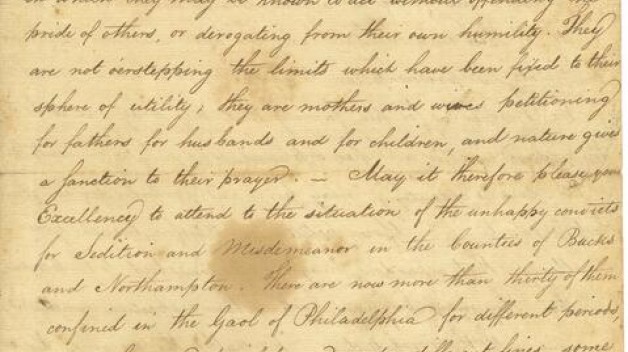 in which they may be known to act without offending the
pride of others, or derogating from their own humility. They
are not o'erstepping the limits which have been fixed to their
sphere of utility; they are mothers and wives petitioning
for fathers for husbands and for children, and nature gives
a sanction to their prayer. — May it therefore please your
Excellency to attend to the situation of the unhappy convicts
for Sedition and Misdemeanor in the Counties of Bucks
and Northampton. There are now more than thirty of them
confined in the Gaol of Philadelphia for different periods,
different fines, some